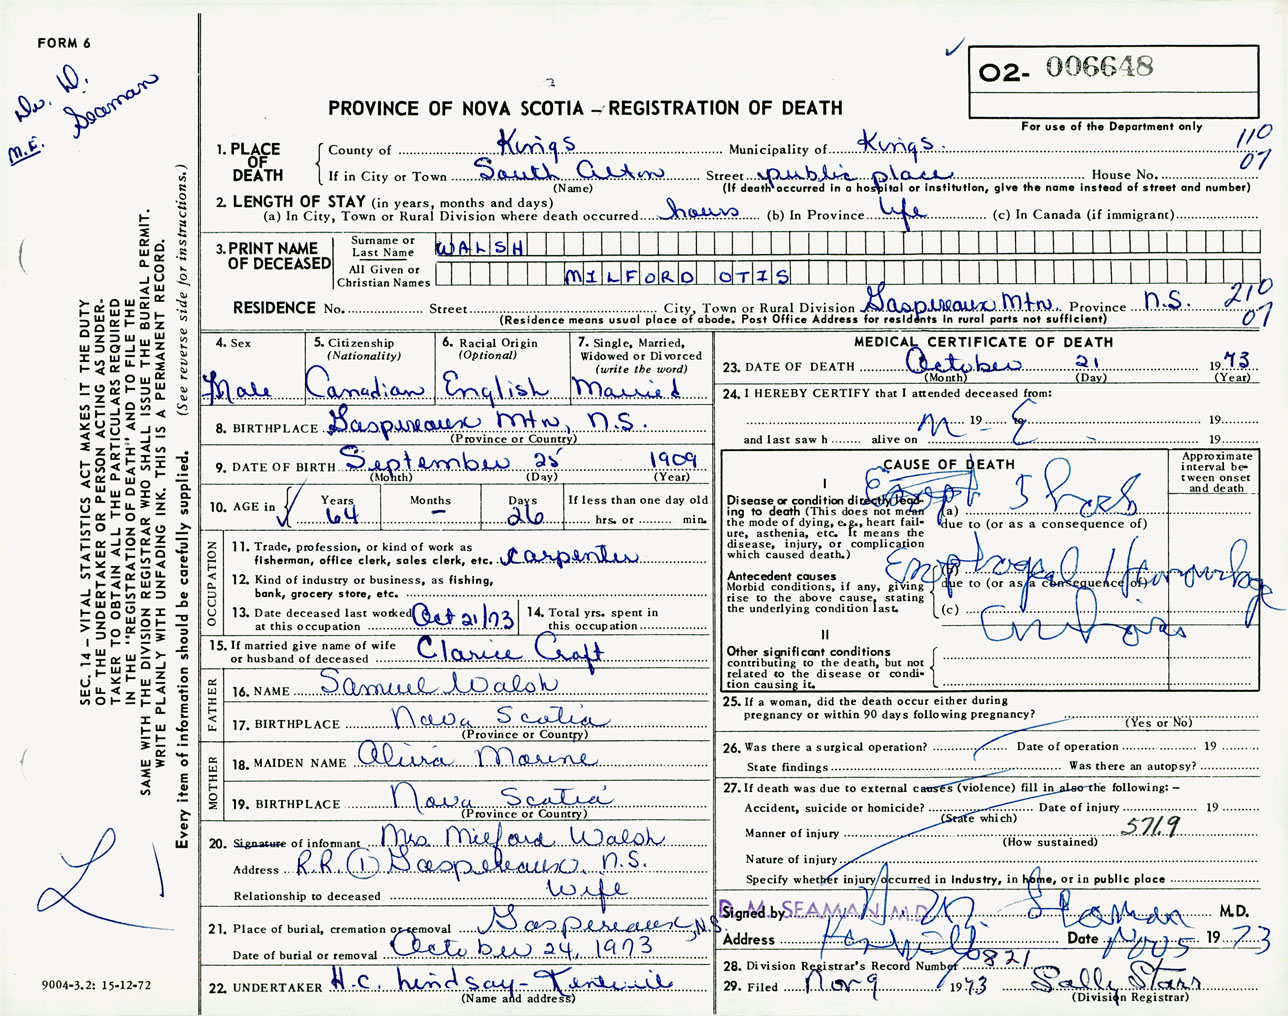 FORM 6
Dr. D. Seaman
M.E.
SEC. 14 — VITAL STATISTICS ACT MAKES IT THE DUTY
OF THE UNDERTAKER OR PERSON ACTING AS UNDER-
TAKER TO OBTAIN ALL THE PARTICULARS REQUIRED
IN THE "REGISTRATION OF DEATH" AND TO FILE THE
SAME WITH THE DIVISION REGISTRAR WHO SHALL ISSUE THE BURIAL PERMIT.
WRITE PLAINLY WITH UNFADING INK. THIS IS A PERMANENT RECORD.
Every item of information should be carefully supplied. (See reverse side for instructions.)
9004-3.2: 15-12-72
02- 006648
For use of the Department only
PROVINCE OF NOVA SCOTIA — REGISTRATION OF DEATH
110
07
1. PLACE OF DEATH
County of Kings Municipality of Kings.
If in City or Town South Alton Street public place House No.
(Name) (If death occurred in a hospital or institution, give the name instead of street and number)
2. LENGTH OF STAY (in years, months and days)
(a) In City, Town or Rural Division where death occurred hours (b) In Province life (c) In Canada (if immigrant)
3. PRINT NAME OF DECEASED
Surname or Last Name WALSH
All Given or Christian Names MILFORD OTIS
RESIDENCE No. Street City, Town or Rural Division Gaspereaux Mtn. Province N.S. 210
07
(Residence means usual place of abode. Post Office Address for residents in rural parts not sufficient)
4. Sex Male
5. Citizenship (Nationality) Canadian
6. Racial Origin (Optional) English
7. Single, Married, Widowed or Divorced (write the word) Married
8. BIRTHPLACE Gaspereaux Mtn, N.S.
(Province or Country)
9. DATE OF BIRTH September 25 1909
(Month) (Day) (Year)
10. AGE in Years 64 Months — Days 26 If less than one day old hrs. or min.
OCCUPATION
11. Trade, profession, or kind of work as fisherman, office clerk, sales clerk, etc. Carpenter
12. Kind of industry or business, as fishing, bank, grocery store, etc.
13. Date deceased last worked at this occupation Oct 21/73
14. Total yrs. spent in this occupation
15. If married give name of wife or husband of deceased Clarice Croft
FATHER
16. NAME Samuel Walsh
17. BIRTHPLACE Nova Scotia
(Province or Country)
MOTHER
18. MAIDEN NAME
19. BIRTHPLACE Nova Scotia
(Province or Country)
20. Signature of informant Mrs. Milford Walsh
Address R.R. 1 Gaspereaux, N.S.
Relationship to deceased Wife
21. Place of burial, cremation or removal Gaspereaux, N.S.
Date of burial or removal October 24, 1973
22. UNDERTAKER H.C. Lindsay - Kentville
(Name and address)
MEDICAL CERTIFICATE OF DEATH
23. DATE OF DEATH October 21 1973
(Month) (Day) (Year)
24. I HEREBY CERTIFY that I attended deceased from:
M - E 19 to 19
and last saw h alive on 19
CAUSE OF DEATH
Approximate interval between onset and death
I
Disease or condition directly leading to death (This does not mean the mode of dying, e.g., heart failure, asthenia, etc. It means the disease, injury, or complication which caused death.)
(a)
due to (or as a consequence of)
Antecedent causes
Morbid conditions, if any, giving rise to the above cause, stating the underlying condition last.
(b) Esophageal Hemorrhage
due to (or as a consequence of)
(c) Cirrhosis
II
Other significant conditions
contributing to the death, but not related to the disease or condition causing it.
25. If a woman, did the death occur either during pregnancy or within 90 days following pregnancy?
(Yes or No)
26. Was there a surgical operation? Date of operation 19
State findings Was there an autopsy?
27. If death was due to external causes (violence) fill in also the following: —
Accident, suicide or homicide? Date of injury 19
(State which)
Manner of injury 571.9
(How sustained)
Nature of injury
Specify whether injury occurred in industry, in home, or in public place
Signed by D. M. SEAMAN, M.D. M.D.
Address Kentville Date Nov 5 1973
28. Division Registrar's Record Number 0821
29. Filed Nov 9 1973 Sally Starr
(Division Registrar)